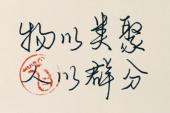 物以类聚
人以群分